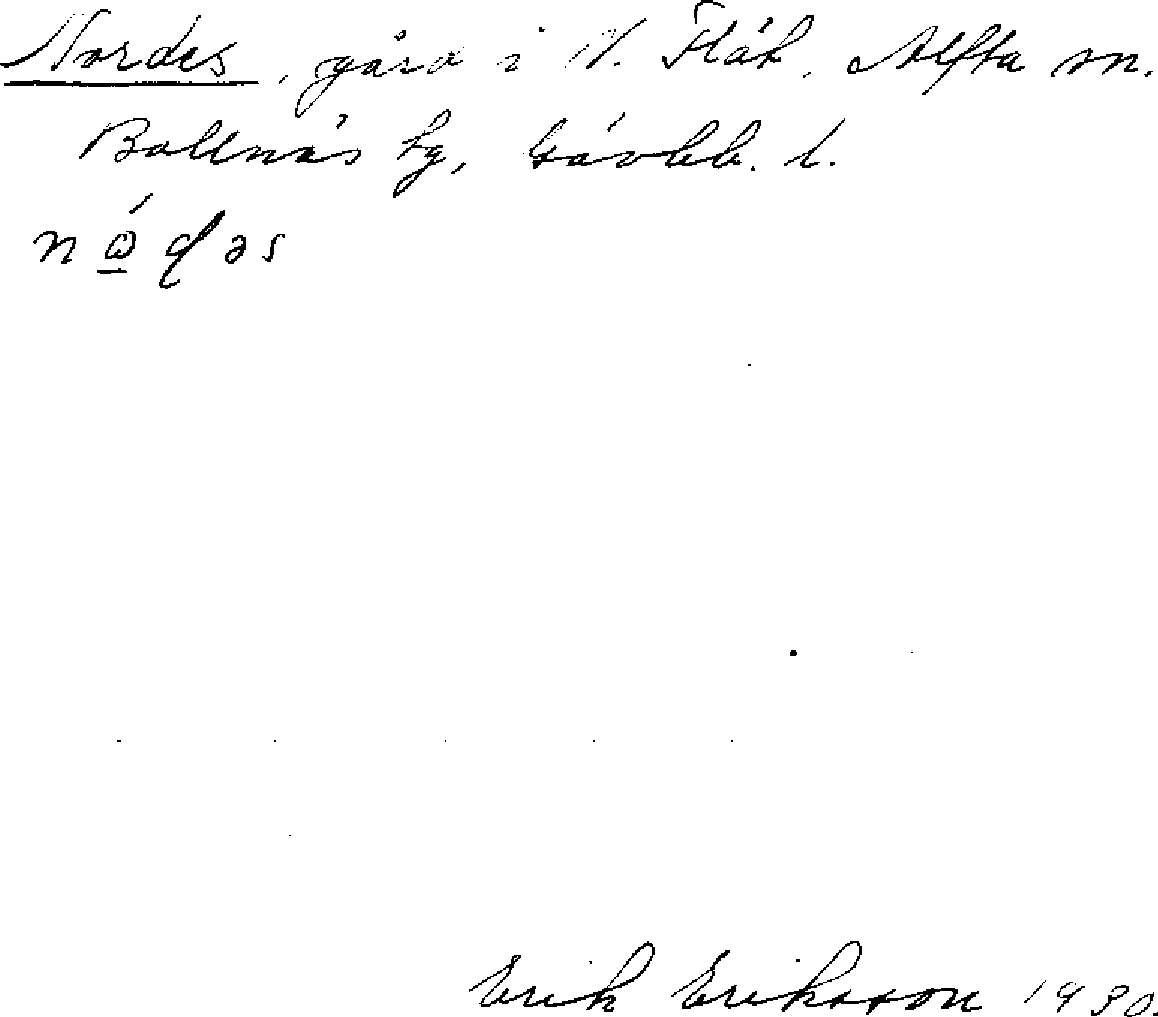 Nordes, gård i N. Fläk, Alfta sn.
Bollnäs tg, Gävleb. l.
nó̲ɖəs
Erik Eriksson 1930.